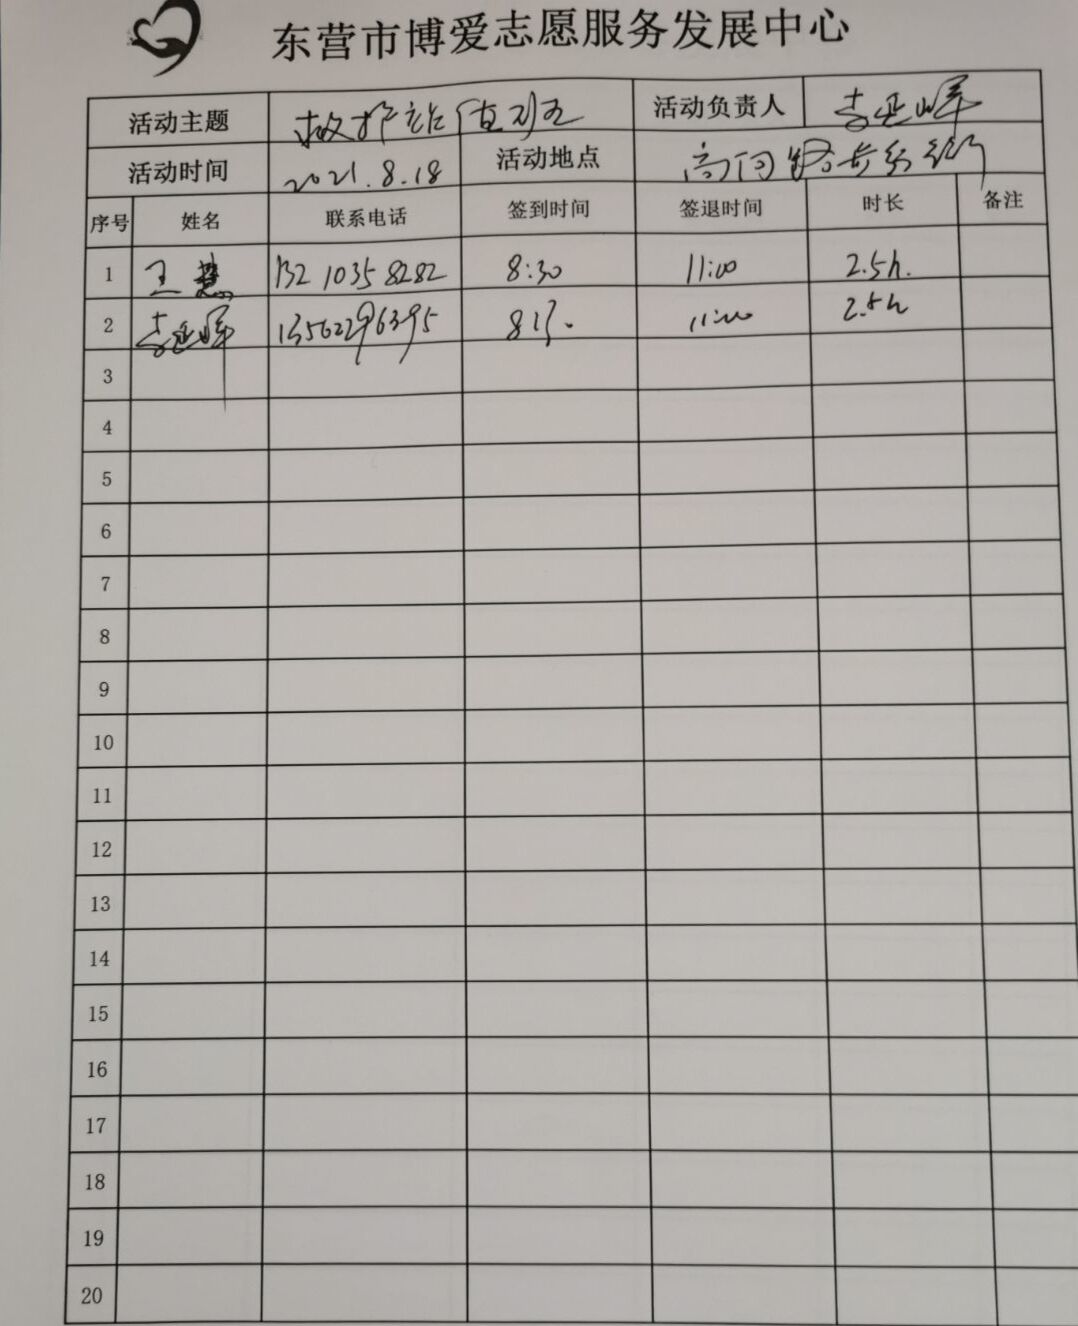 东营市博爱志愿服务发展中心
活动主题 救护站值班 活动负责人 李延峰
活动时间 2021.8.18 活动地点
序号 姓名 联系电话 签到时间 签退时间 时长 备注
1 王慧 132 1035 8282 8:30 11:00 2.5h.
2 李延峰 13562296395 11:00 2.5h
3
4
5
6
7
8
9
10
11
12
13
14
15
16
17
18
19
20